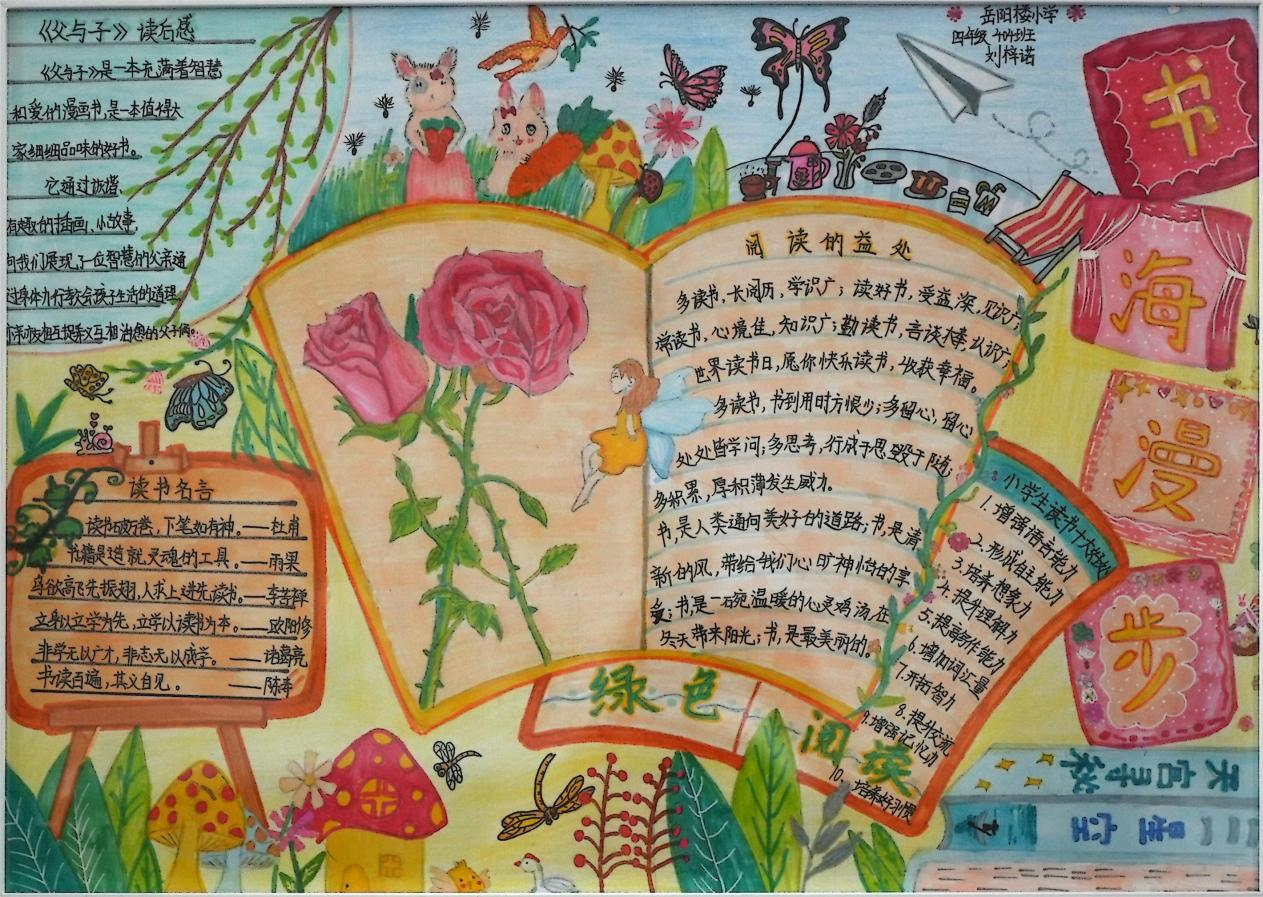 《父与子》读后感
《父与子》是一本充满着智慧
和爱的漫画书,是一本值得大
家细细品味的好书。
它通过诙谐、
有趣的插画、小故事,
向我们展现了一位智慧的父亲通
过身体力行教会孩子生活的道理,
相互提携又互相治愈的父子俩。
岳阳楼小学
四年级 404班
刘梓诺
书
海
漫
步
阅读的益处
多读书,长阅历,学识广;读好书,受益深,见识广;
常读书,心境佳,知识广;勤读书,言谈棒,认识广;
世界读书日,愿你快乐读书,收获幸福。
多读书,书到用时方恨少;多留心,留心
处处皆学问;多思考,行成于思毁于随;
多积累,厚积薄发生威力。
书,是人类通向美好的道路;书,是清
新的风,带给我们心旷神怡的享
受;书是一碗温暖的心灵鸡汤,在
冬天带来阳光;书,是最美丽的。
读书名言
读书破万卷,下笔如有神。——杜甫
书籍是造就灵魂的工具。——雨果
鸟欲高飞先振翅,人求上进先读书。——李苦禅
立身以立学为先,立学以读书为本。——欧阳修
非学无以广才,非志无以成学。——诸葛亮
书读百遍,其义自见。——陈寿
小学生读书十大好处
1.增强语言能力
2.形成自主能力
3.培养想象力
4.提升理解力
5.提高写作能力
6.增加词汇量
7.开拓智力
8.提升交流
9.增强记忆力
10.培养好习惯
绿色
阅读
天宫寻秘
二星空